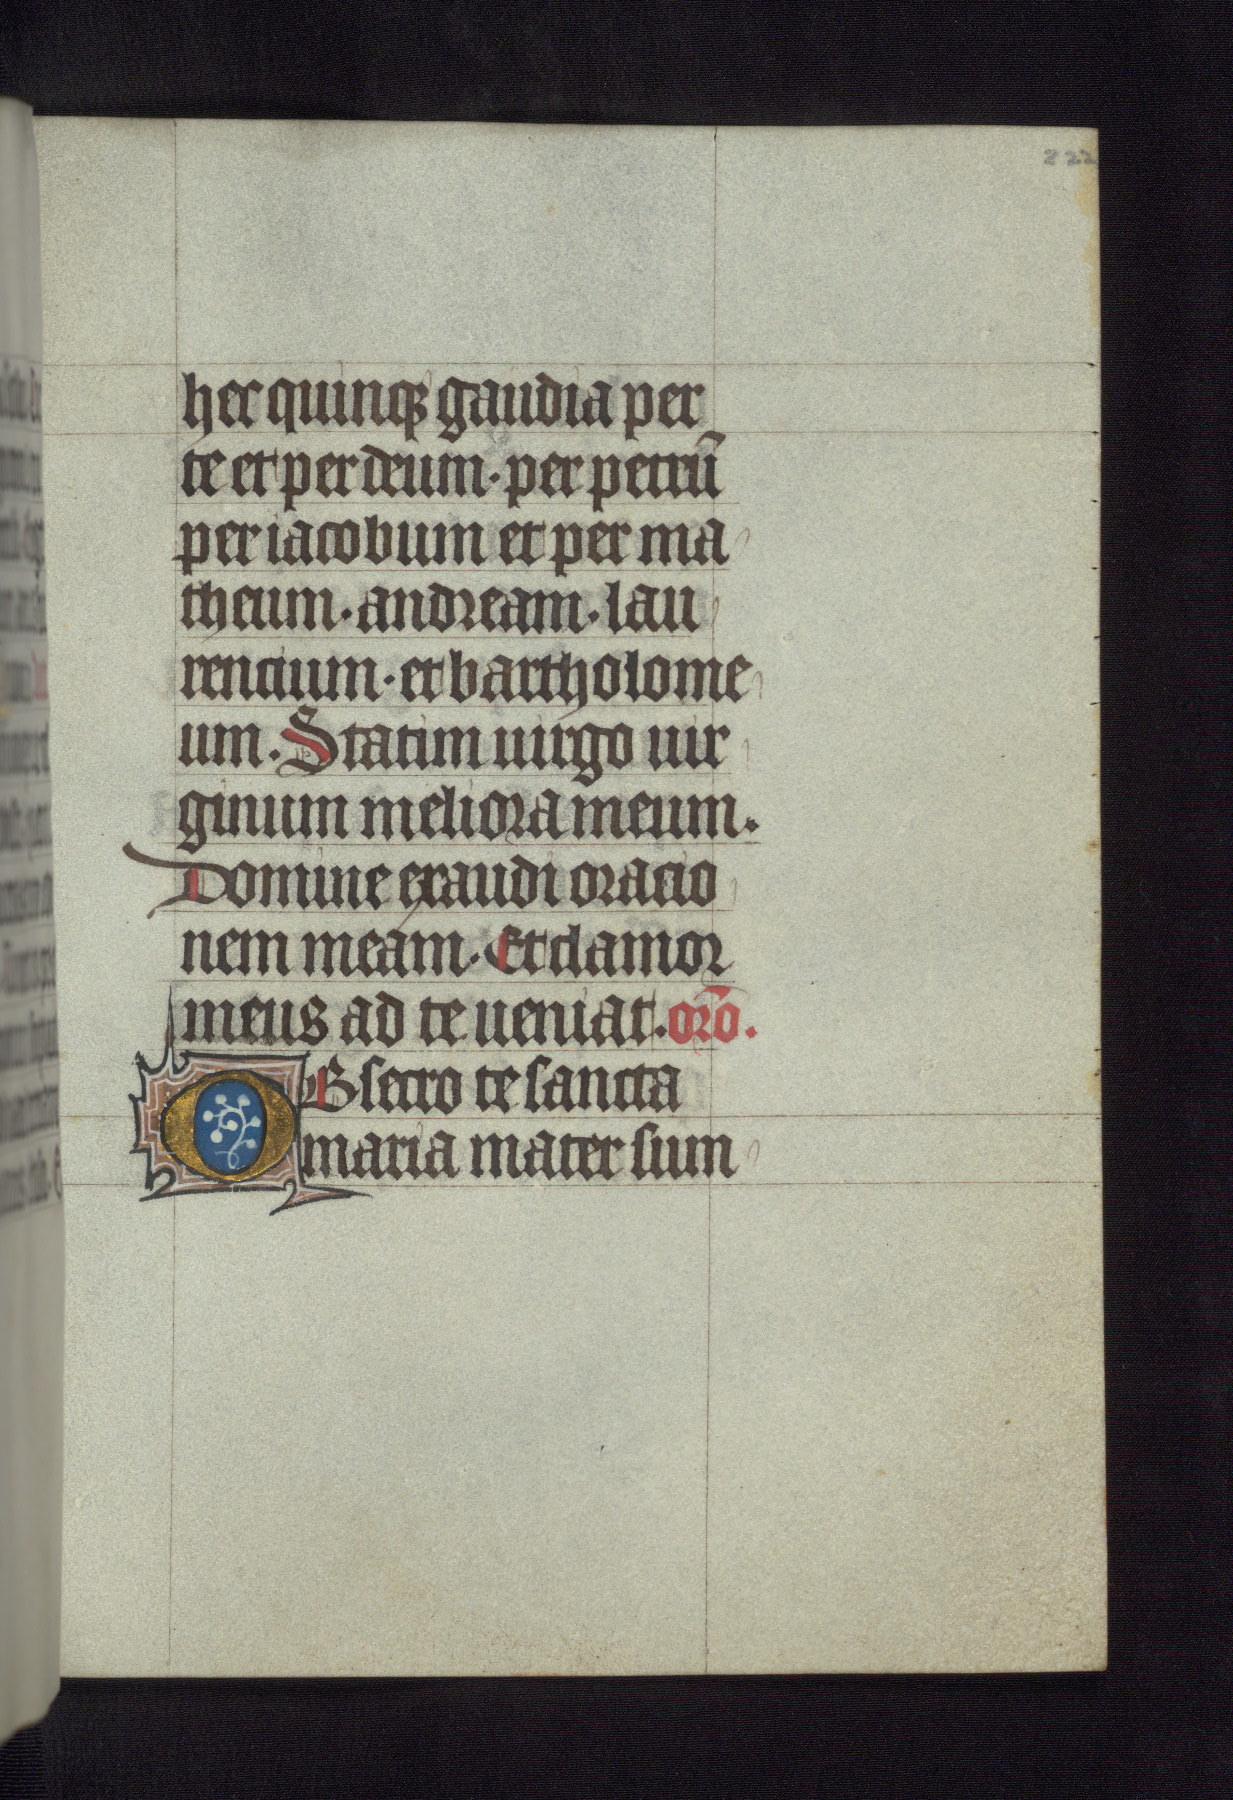 222
hec quinqꝫ gaudia per
te et per deum· per petrū
per iacobum et per ma
theum· andream· lau
rencium· et bartholome
um. Statim uirgo uir
ginum meliora meum.
Domine exaudi oracio
nem meam. Et clamor
meus ad te ueniat. or̄o.
OBsecro te sancta
maria mater sum